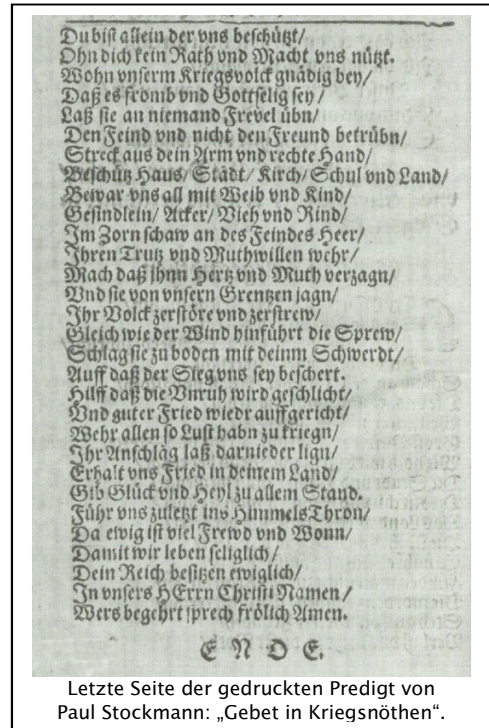 Du bist allein der vns beschützt/
Ohn dich kein Rath vnd Macht vns nützt.
Wohn vnserm Kriegsvolck gnädig bey/
Daß es fromb vnd Gottselig sey/
Laß sie an niemand Frevel übn/
Den Feind vnd nicht den Freund betrübn/
Streck aus dein Arm vnd rechte Hand/
Beschütz Haus/ Städt/ Kirch/ Schul vnd Land/
Bewar vns all mit Weib vnd Kind/
Gesindlein/ Äcker/ Vieh vnd Rind/
Im Zorn schaw an des Feindes Heer/
Ihren Trutz vnd Muthwillen wehr/
Mach daß ihnn Hertz vnd Muth verzagn/
Vnd sie von vnsern Grentzen jagn/
Ihr Volck zerstöre vnd zerstrew/
Gleich wie der Wind hinführt die Sprew/
Schlag sie zu boden mit deinm Schwerdt/
Auff daß der Sieg vns sey beschert.
Hilff daß die Vnruh wird geschlicht/
Vnd guter Fried wiedr auffgericht/
Wehr allen so Lust habn zu kriegn/
Ihr Anschläg laß darnieder lign/
Erhalt vns Fried in deinem Land/
Gib Glück vnd Heyl zu allem Stand.
Führ vns zuletzt ins Himmels Thron/
Da ewig ist viel Frewd vnd Wonn/
Damit wir leben seliglich/
Dein Reich besitzen ewiglich/
In vnsers HErrn Christi Namen/
Wers begehrt sprech frölich Amen.
E N D E.
Letzte Seite der gedruckten Predigt von
Paul Stockmann: „Gebet in Kriegsnöthen“.